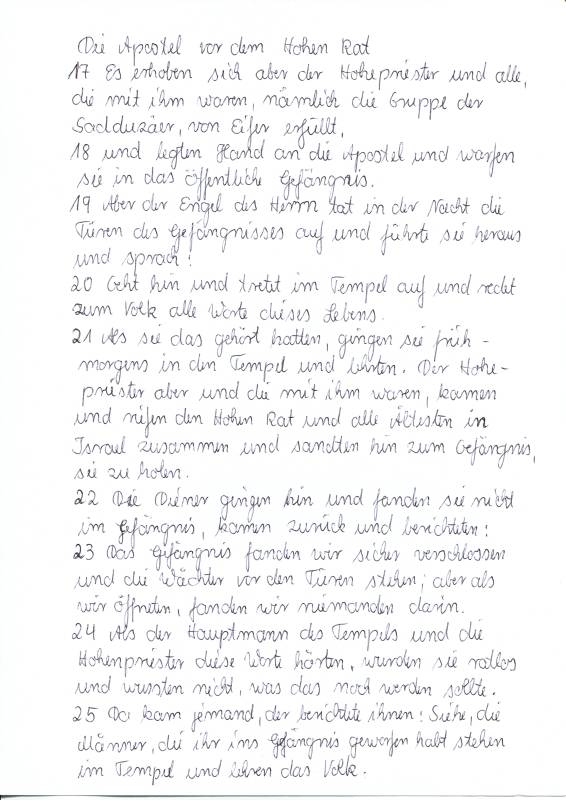 Die Apostel vor dem Hohen Rat
17 Es erhoben sich aber der Hohepriester und alle,
die mit ihm waren, nämlich die Gruppe der
Sadduzäer, von Eifer erfüllt,
18 und legten Hand an die Apostel und warfen
sie in das öffentliche Gefängnis.
19 Aber der Engel des Herrn tat in der Nacht die
Türen des Gefängnisses auf und führte sie heraus
und sprach:
20 Geht hin und tretet im Tempel auf und redet
zum Volk alle Worte dieses Lebens.
21 Als sie das gehört hatten, gingen sie früh-
morgens in den Tempel und lehrten. Der Hohe-
priester aber und die mit ihm waren, kamen
und riefen den Hohen Rat und alle Ältesten in
Israel zusammen und sandten hin zum Gefängnis,
sie zu holen.
22 Die Diener gingen hin und fanden sie nicht
im Gefängnis, kamen zurück und berichteten:
23 Das Gefängnis fanden wir sicher verschlossen
und die Wächter vor den Türen stehen; aber als
wir öffneten, fanden wir niemanden darin.
24 Als der Hauptmann des Tempels und die
Hohenpriester diese Worte hörten, wurden sie ratlos
und wussten nicht, was das noch werden sollte.
25 Da kam jemand, der berichtete ihnen: Siehe, die
Männer, die ihr ins Gefängnis geworfen habt stehen
im Tempel und lehren das Volk.